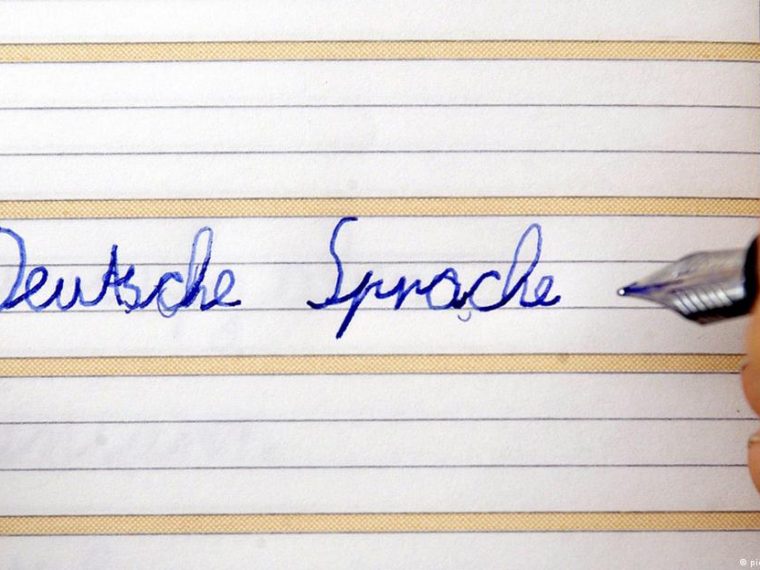 Deutsche Sprache